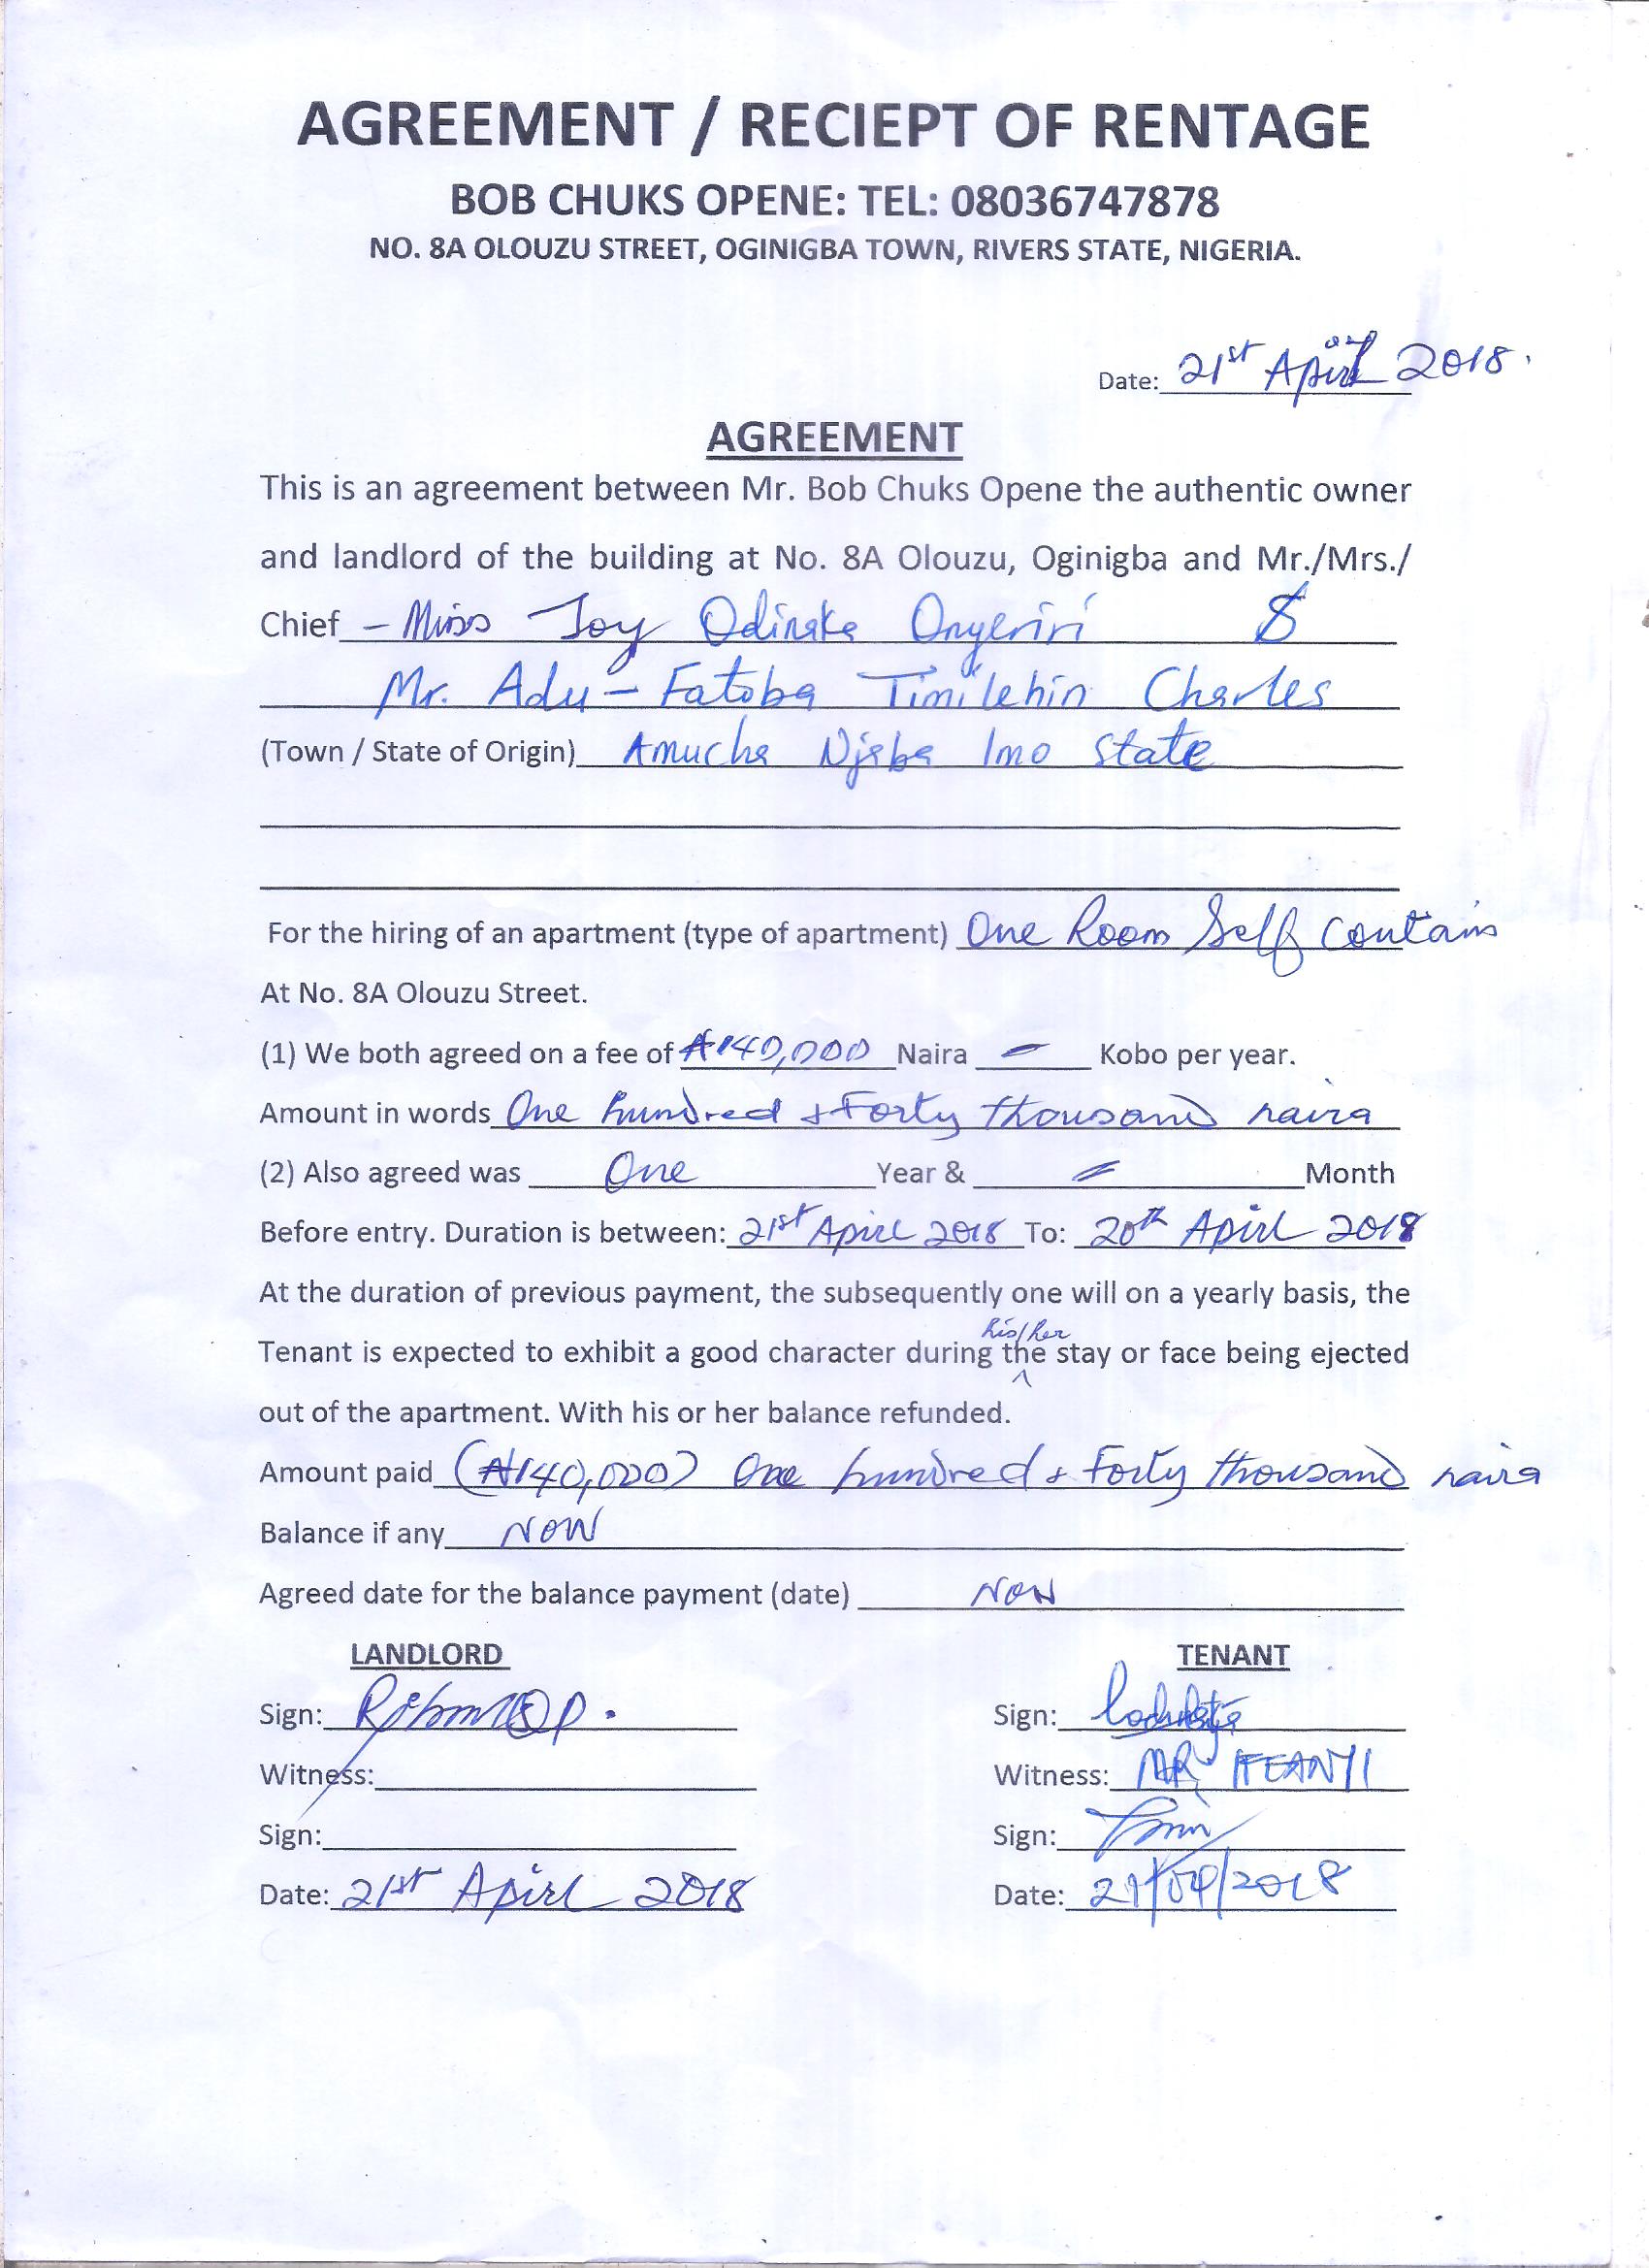 AGREEMENT / RECIEPT OF RENTAGE
BOB CHUKS OPENE: TEL: 08036747878
NO. 8A OLOUZU STREET, OGINIGBA TOWN, RIVERS STATE, NIGERIA.
Date: 21st April 2018.
AGREEMENT
This is an agreement between Mr. Bob Chuks Opene the authentic owner
and landlord of the building at No. 8A Olouzu, Oginigba and Mr./Mrs./
Chief - Miss Joy Odinaka Onyeriri &
Mr. Adu - Fatoba Timilehin Charles
(Town / State of Origin) Amucha Njaba Imo State
For the hiring of an apartment (type of apartment) One Room Self Contain
At No. 8A Olouzu Street.
(1) We both agreed on a fee of ₦140,000 Naira = Kobo per year.
Amount in words One hundred & Forty thousand naira
(2) Also agreed was One Year & = Month
Before entry. Duration is between: 21st Apirl 2018 To: 20th Apirl 2018
At the duration of previous payment, the subsequently one will on a yearly basis, the
his/her
Tenant is expected to exhibit a good character during the stay or face being ejected
out of the apartment. With his or her balance refunded.
Amount paid (₦140,000) One hundred & Forty thousand naira
Balance if any NON
Agreed date for the balance payment (date) NON
LANDLORD TENANT
Sign: Sign:
Witness: Witness: MR IFEANYI
Sign: Sign:
Date: 21st Apirl 2018 Date: 21/04/2018